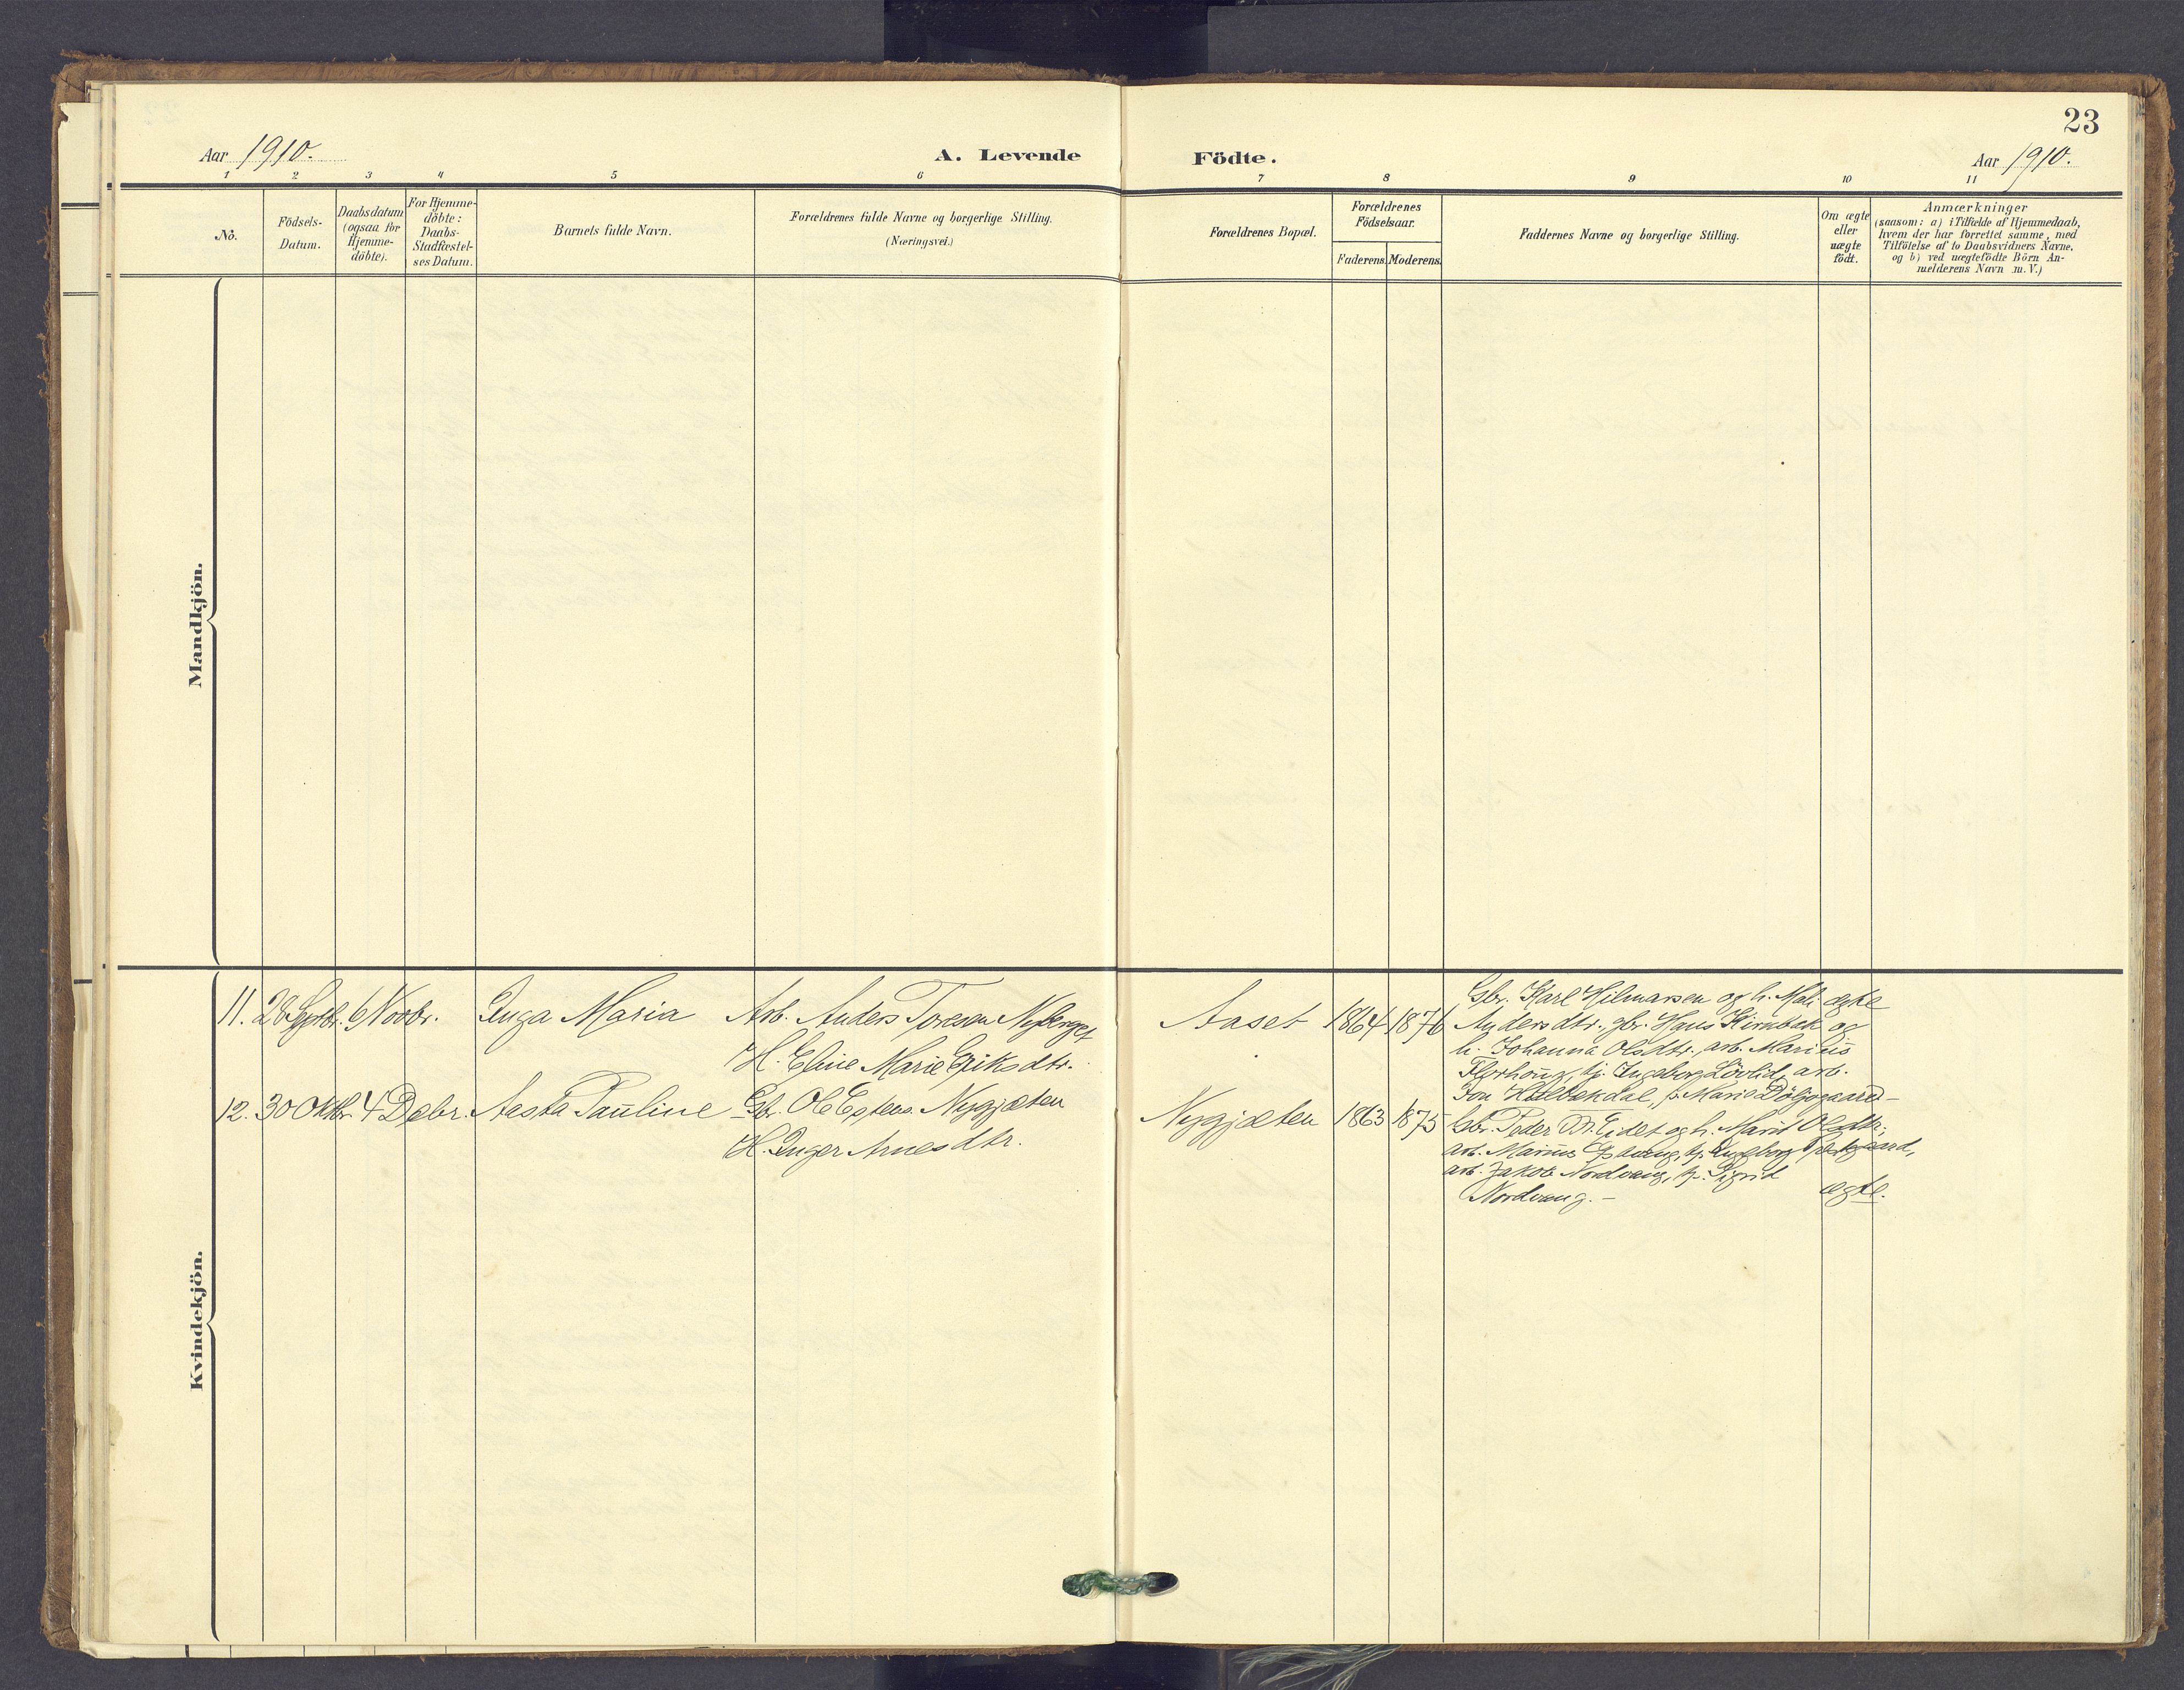 23
Aar 1910.
A. Levende
Födte.
Aar 1910.
1 2 3 4 5 6 7 8 9 10 11
No.
Födsels-
Datum.
Daabsdatum
(ogsaa for
Hjemme-
döbte).
For Hjemme-
döbte:
Daabs-
Stadfæstel-
ses Datum.
Barnets fulde Navn.
Forældrenes fulde Navne og borgerlige Stilling.
(Næringsvei.)
Forældrenes Bopæl.
Forældrenes
Födselsaar.
Faderens. Moderens.
Faddernes Navne og borgerlige Stilling.
Om ægte
eller
uægte
födt.
Anmærkninger
(saasom: a) i Tilfælde af Hjemmedaab,
hvem der har forrettet samme, med
Tilföielse af to Daabsvidners Navne,
og b) ved uægtefödte Börn An-
melderens Navn m. V.)
Mandkjön.
Kvindekjön.
11. 28 Septbr. 6 Novbr. Inga Maria
Arb. Anders Toresen Nyberget
H. Eline Marie Eriksdtr.
Aaset 1864 1876
Gbr. Karl Hilmarsen og h. Mali
Andersdtr., gbr. Hans Kirnbak og
h. Johanna Olsdtr., arb. Marius
Florhoug, pj. Ingeborg Lövlid, arb.
Jon Kalbækdal, p. Marie Döljegaard-
ægte
12. 30 Oktbr. 4 Debr. Aasta Pauline
Gbr. Ole Estens. Nygjæten
H. Inger Arnesdtr.
Nygjæten 1863 1875
Gbr. Peder Eidet og h. Marit Olsdtr.;
arb. Marius pj. Ingeborg
arb. Jakob Nordvang, p. Sigrid
Nordvang.-
ægte.